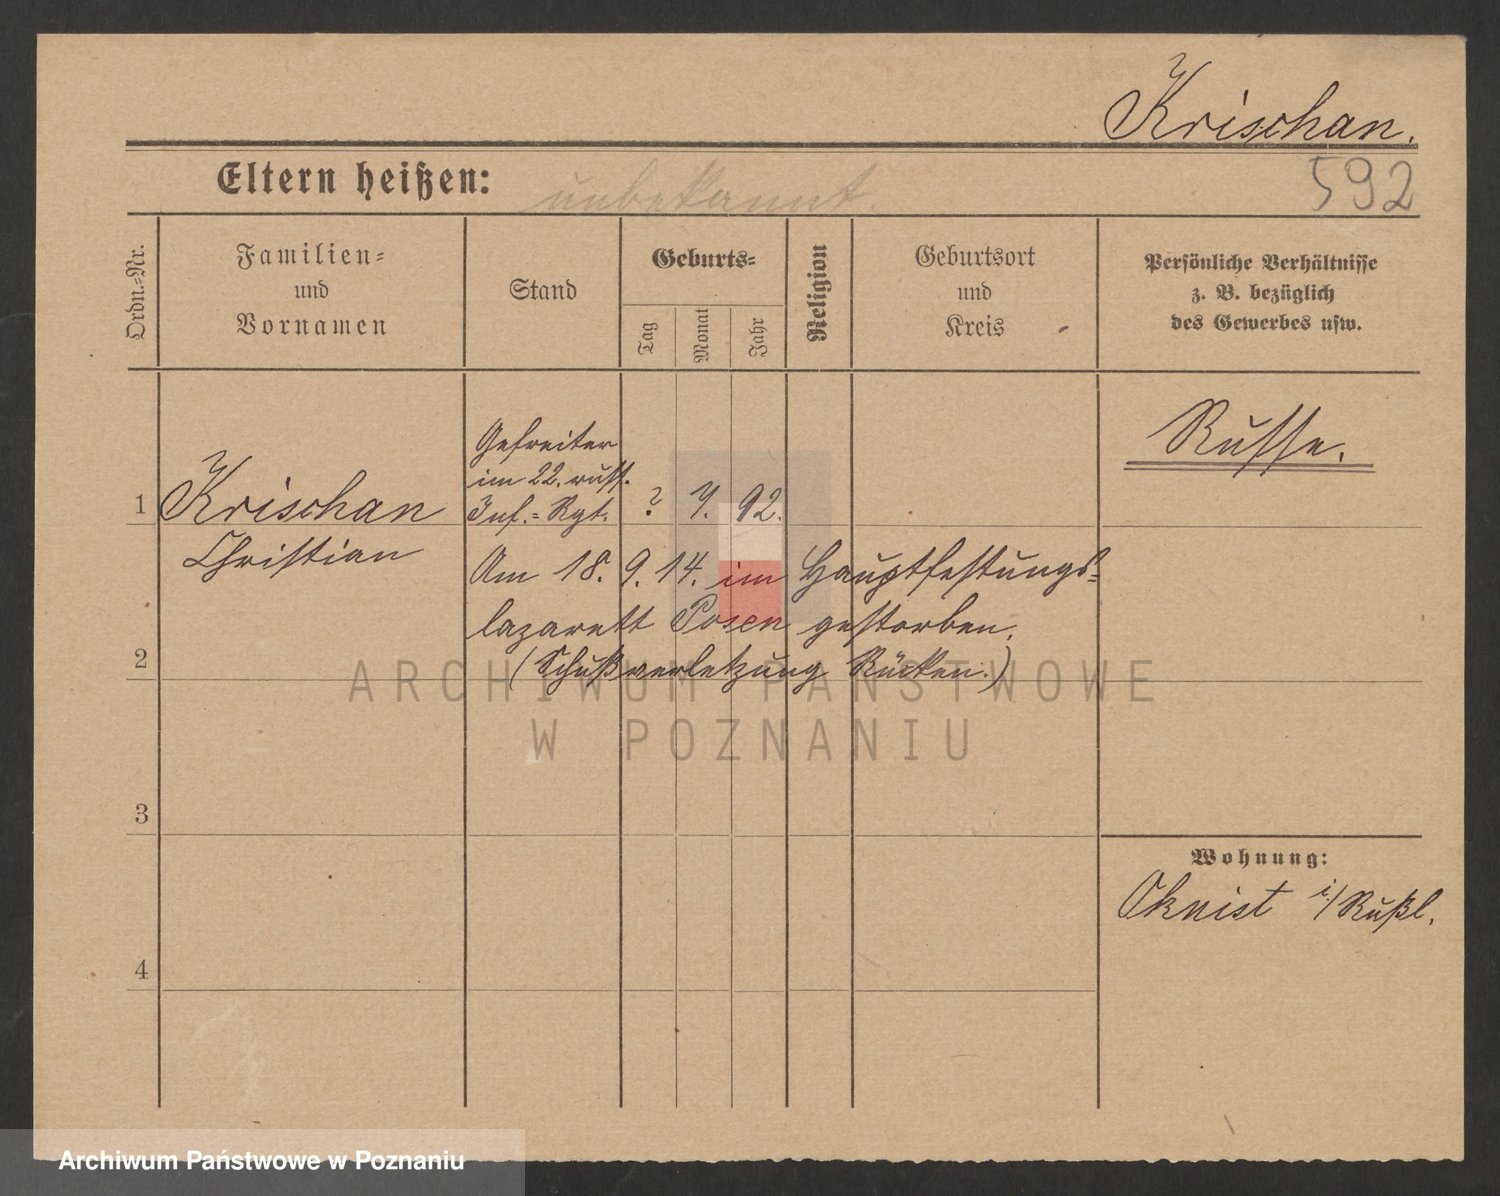 Krischan.
Eltern heißen: unbekannt.
592
Ordn.-Nr.
Familien-
und
Vornamen
Stand
Geburts-
Tag
Monat
Jahr
Religion
Geburtsort
und
Kreis
Persönliche Verhältnisse
z. B. bezüglich
des Gewerbes usw.
Russe.
1
Krischan
Christian
Gefreiter
im 22. russ.
Inf.-Rgt.
? 7. 92.
Am 18. 9. 14. im Hauptfestungs-
lazarett Posen gestorben.
(Schußverletzung Rücken.)
2
3
4
Wohnung:
Oknist i/Rußl.
ARCHIWUM PAŃSTWOWE
W POZNANIU
Archiwum Państwowe w Poznaniu